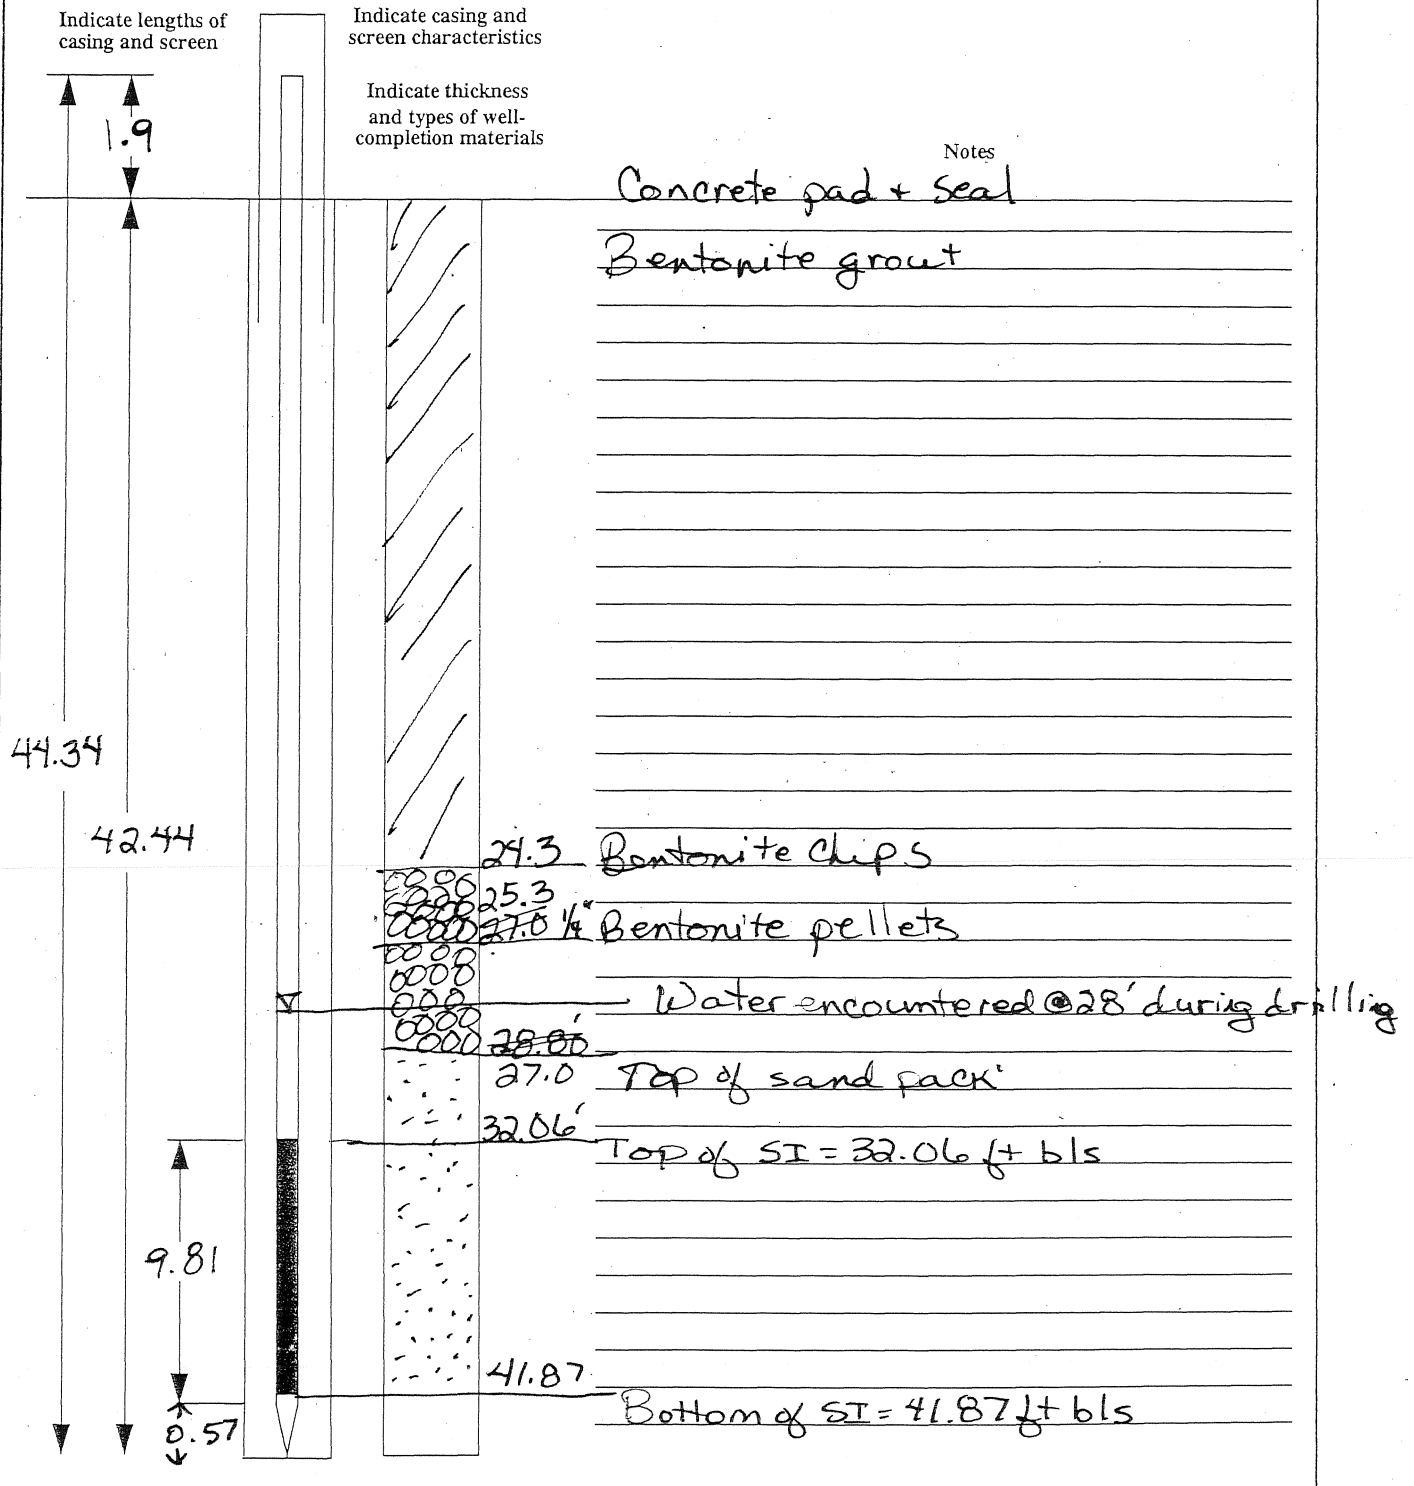 Indicate lengths of
casing and screen
Indicate casing and
screen characteristics
Indicate thickness
and types of well-
completion materials
Notes
1.9
Concrete pad + seal
Bentonite grout
44.34
42.44
24.3 Bentonite Chips
25.3
27.0 1/4" Bentonite pellets
Water encountered @ 28' during drilling
28.80'
27.0 Top of sand pack
32.06'
Top of SI = 32.06 ft bls
9.81
41.87
Bottom of SI = 41.87 ft bls
0.57